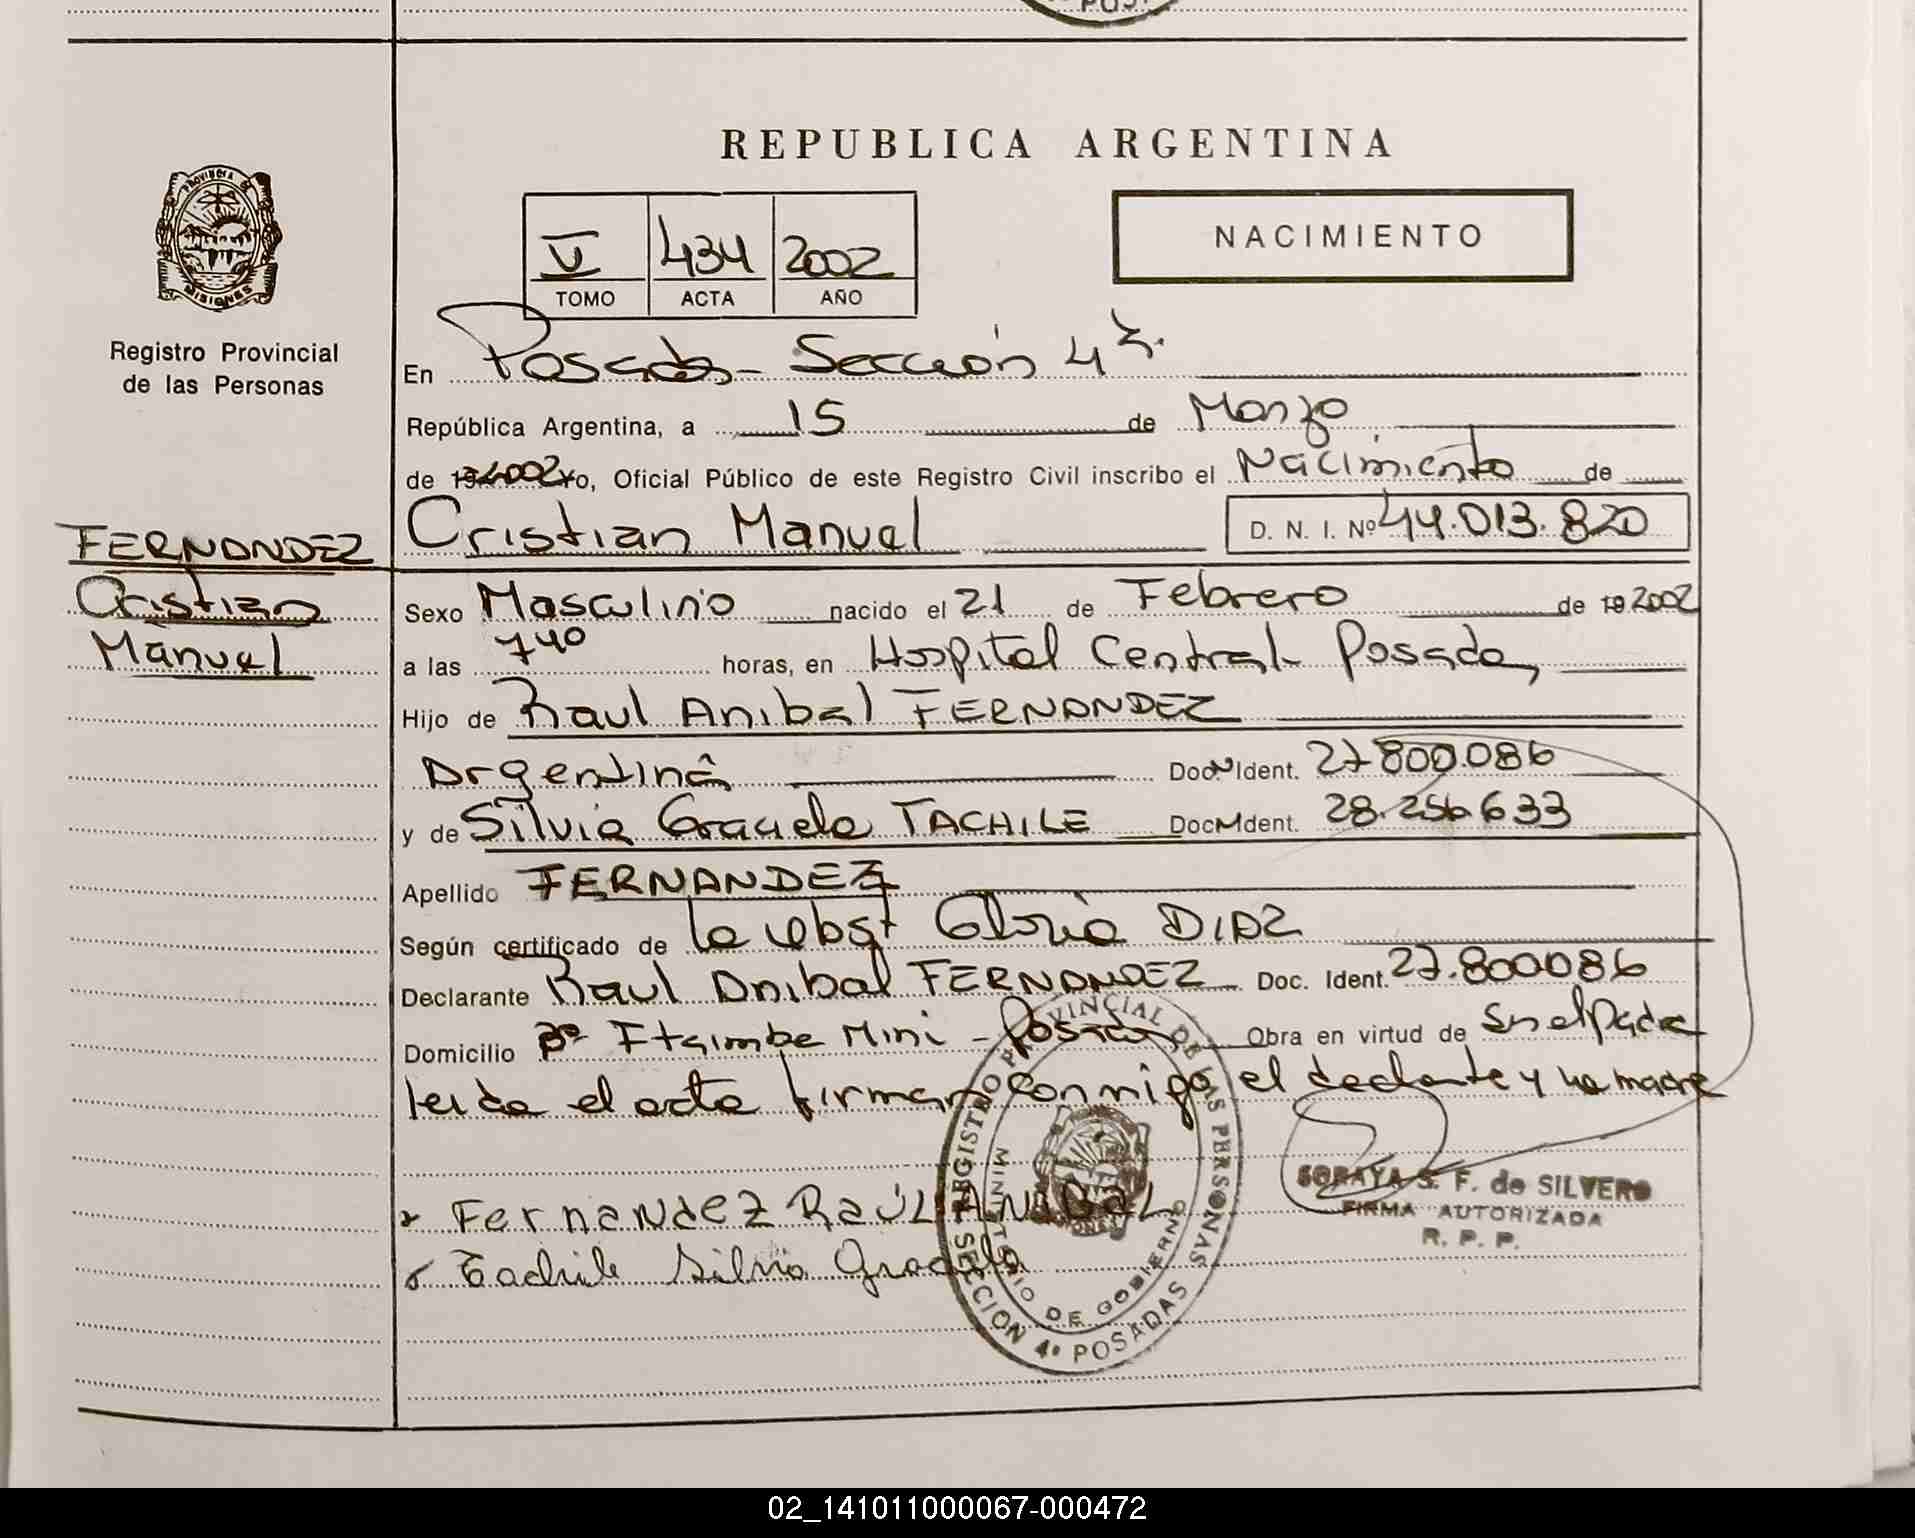 REPUBLICA ARGENTINA
PROVINCIA DE
MISIONES
Registro Provincial
de las Personas
V 434 2002
TOMO ACTA AÑO
NACIMIENTO
En Posadas - Sección 4ª.
República Argentina, a 15 de Marzo
de 2002 Yo, Oficial Público de este Registro Civil inscribo el Nacimiento de
FERNANDEZ
Cristian
Manuel
Cristian Manuel D. N. I. Nº 44.013.820
Sexo Masculino nacido el 21 de Febrero de 19 2002
a las 7 40 horas, en Hospital Central - Posadas
Hijo de Raul Anibal FERNANDEZ
Argentina Doc. Ident. 27.800.086
y de Silvia Graciela TACHILE Doc. Ident. 28.256.633
Apellido FERNANDEZ
Según certificado de la Obst Gloria DIAZ
Declarante Raul Anibal FERNANDEZ Doc. Ident. 27.800.086
Domicilio Bº Itaimbe Mini - Posadas Obra en virtud de Sn el Padre
leida el acta firman conmigo el declante y la madre
Fernandez RAÚL ANIBAL
Tachile Silvia Graciela
REGISTRO PROVINCIAL DE LAS PERSONAS
MINISTERIO DE GOBIERNO
SECCION 4º POSADAS
SORAYA S. F. de SILVERO
FIRMA AUTORIZADA
R. P. P.
02_141011000067-000472